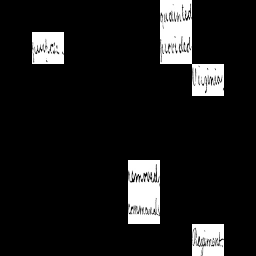 appointed
purpose. provided
Virginia,
removed,
command
Regiment